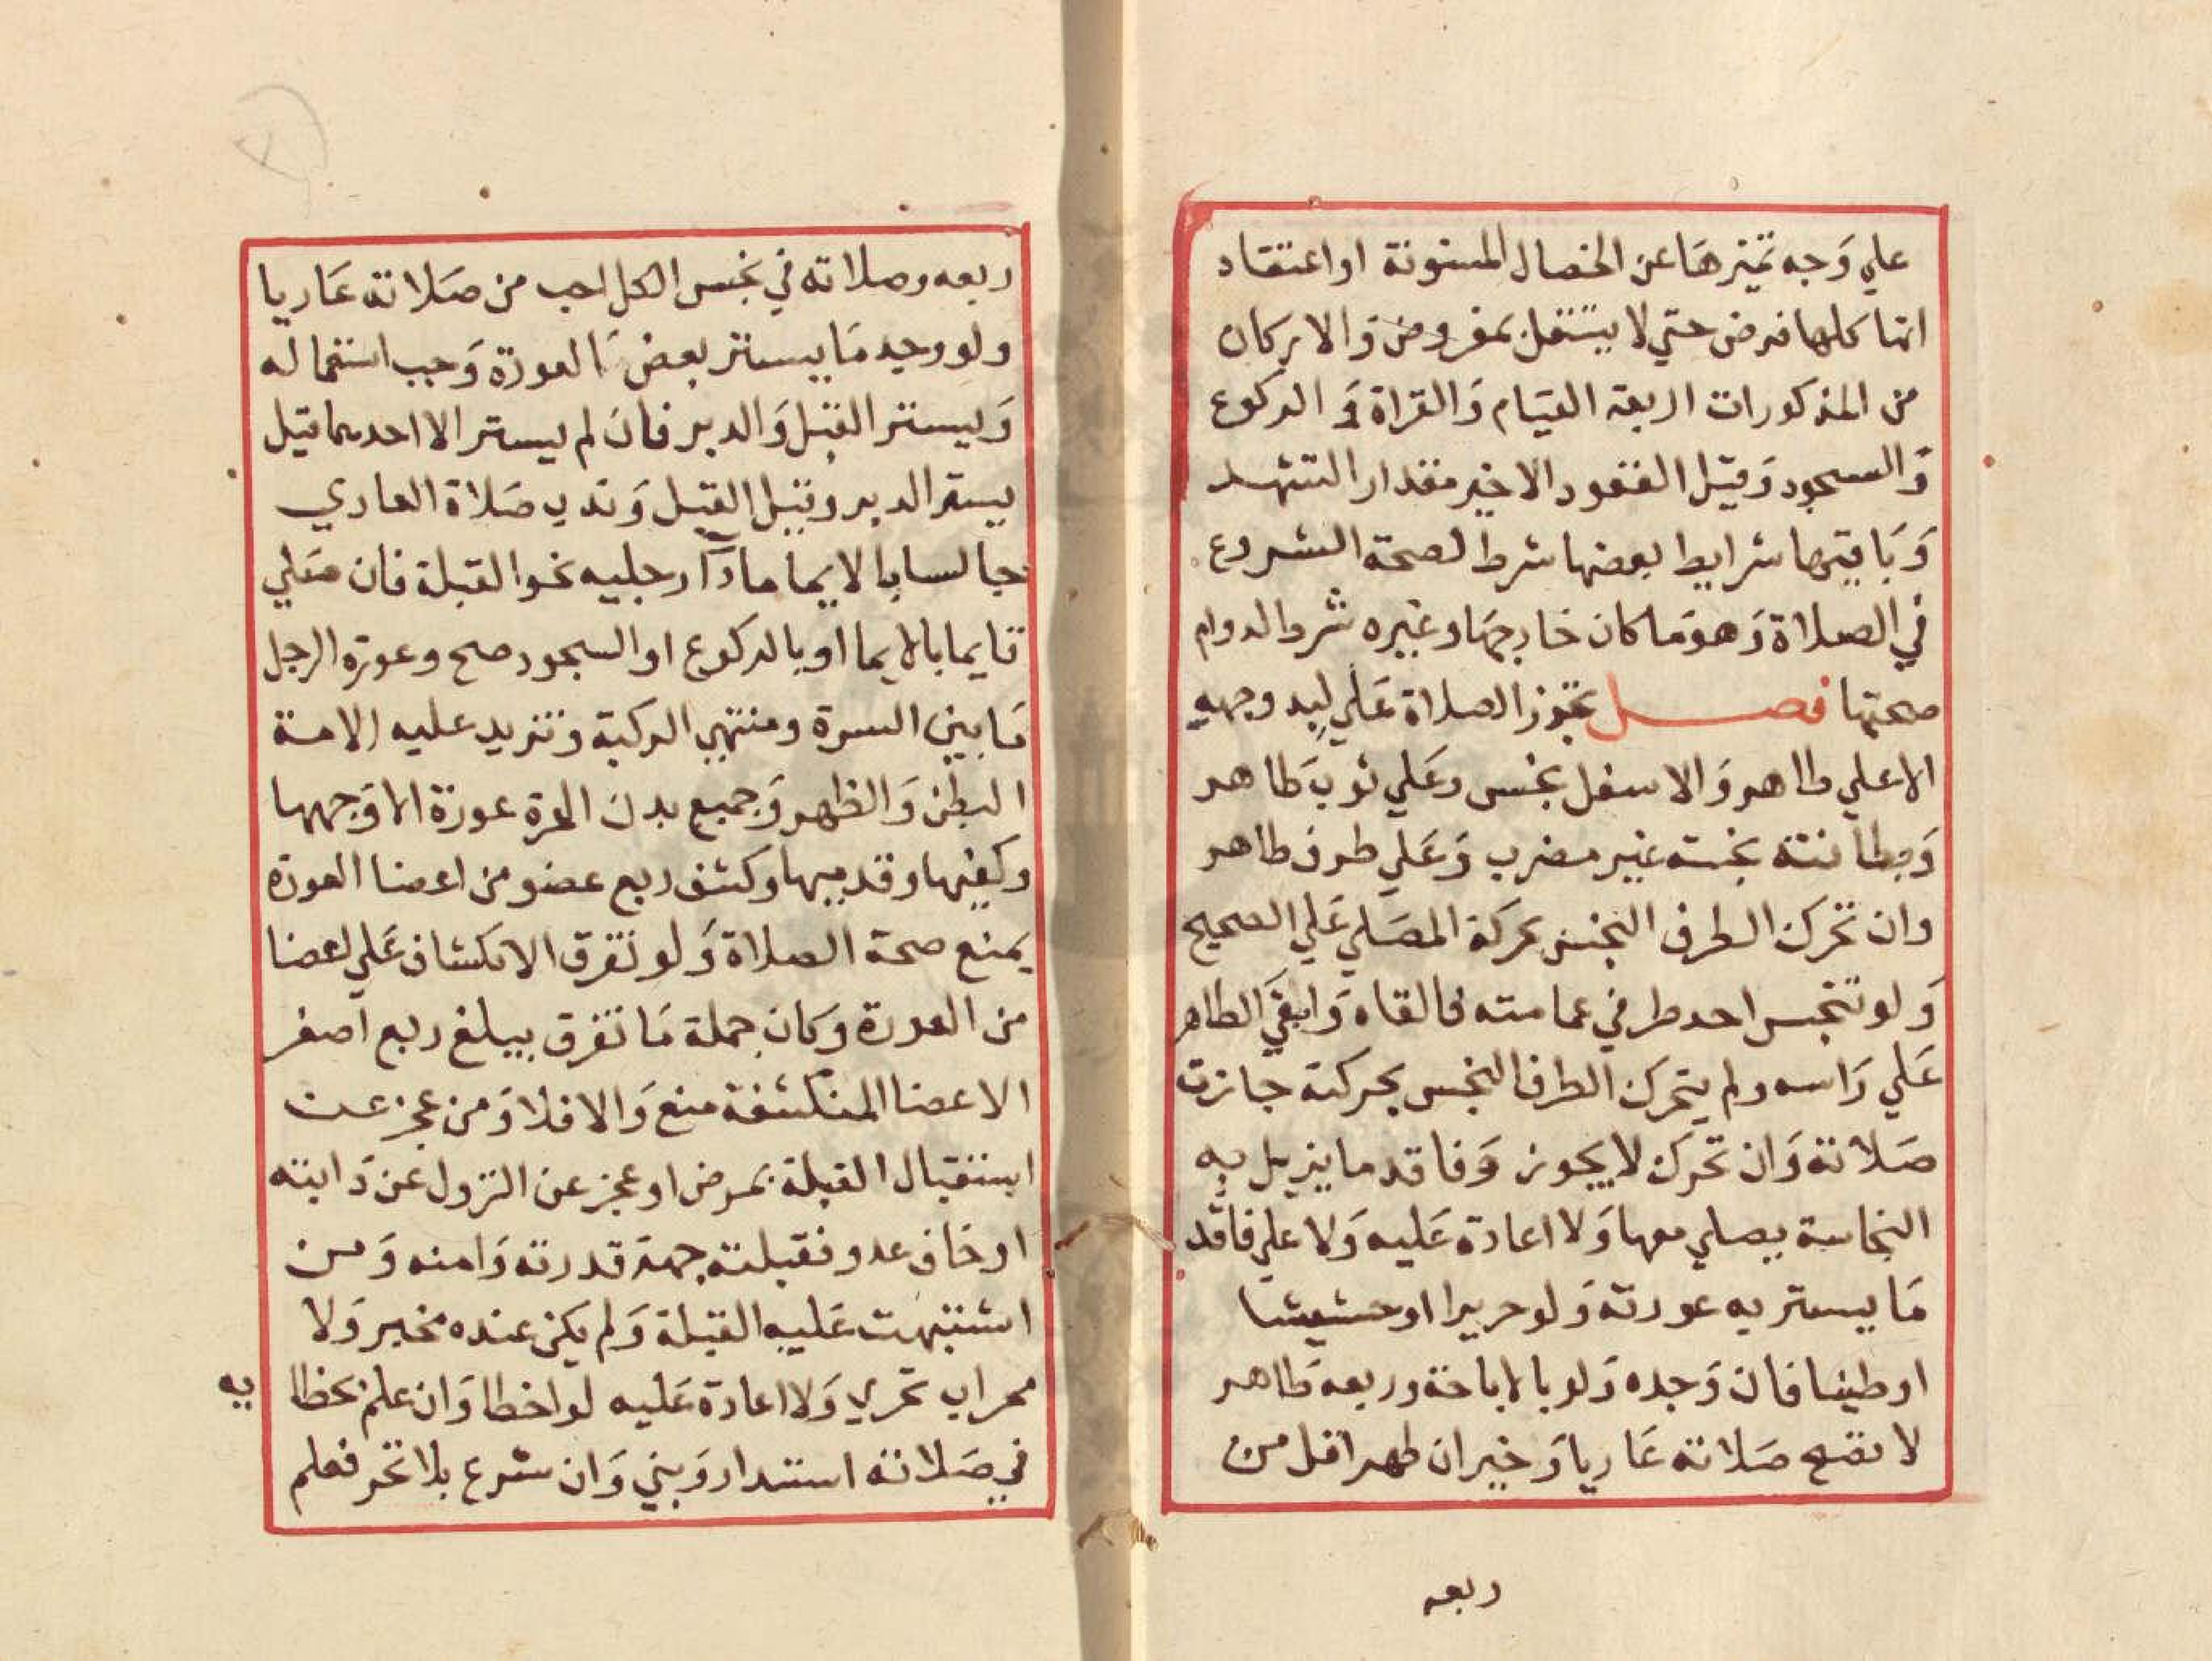 علي وجه تميزها عن الخصال المسنونة او اعتقاد
انها كلها فرض حتي لا يتنفل بمفروض والاركان
من المذكورات اربعة القيام والقراة والركوع
والسجود وقيل القعود الاخير مقدار التشهد
وباقيها شرايط بعضها شرط لصحة الشروع
في الصلاة وهو ما كان خارجها وغيره شرط لدوام
صحتها فصل تجوز الصلاة علي لبد وجهه
الاعلي طاهر والاسفل نجس وعلي ثوب طاهر
وبطانته نجسه غير مضرب وعلي طرف طاهر
وان تحرك الطرف النجس بحركة المصلي علي الصحيح
ولو تنجس احد طرفي عمامته فالقاه وابقي الطاهر
علي راسه ولم يتحرك الطرف النجس بحركته جازت
صلاته وان تحرك لا يجوز وفاقد ما يزيل به
النجاسة يصلي معها ولا اعادة عليه ولا علي فاقد
ما يستر به عورته ولو حريرا او حشيشا
او طينا فان وجده ولو بالاباحة وربعه طاهر
لا تصح صلاته عاريا وخير ان طهر اقل من
ربعه
ربعه وصلاته في نجس الكل احب من صلاته عاريا
ولو وجد ما يستر بعض العورة وجب استعماله
ويستر القبل والدبر فان لم يستر الا احدهما قيل
يستر الدبر وقيل القبل وندب صلاة العاري
جالسا بالايما مادا رجليه نحو القبلة فان صلي
قايما بالايما او بالركوع او السجود صح وعورة الرجل
ما بين السرة ومنتهي الركبة وتزيد عليه الامة
البطن والظهر وجميع بدن الحرة عورة الا وجهها
وكفيها وقدميها وكشف ربع عضو من اعضا العورة
يمنع صحة الصلاة ولو تفرق الانكشاف علي اعضا
من العورة وكان جملة ما تفرق يبلغ ربع اصغر
الاعضا المنكشفة منع والا فلا ومن عجز عن
استقبال القبلة بمرض او عجز عن النزول عن دابته
او خاف عدو فقبلته جهة قدرته وامنه ومن
اشتبهت عليه القبلة ولم يكن عنده مخبر ولا
محراب تحري ولا اعادة عليه لو اخطا وان علم بخطا
يه
في صلاته استدار وبني وان شرع بلا تحر فعلم